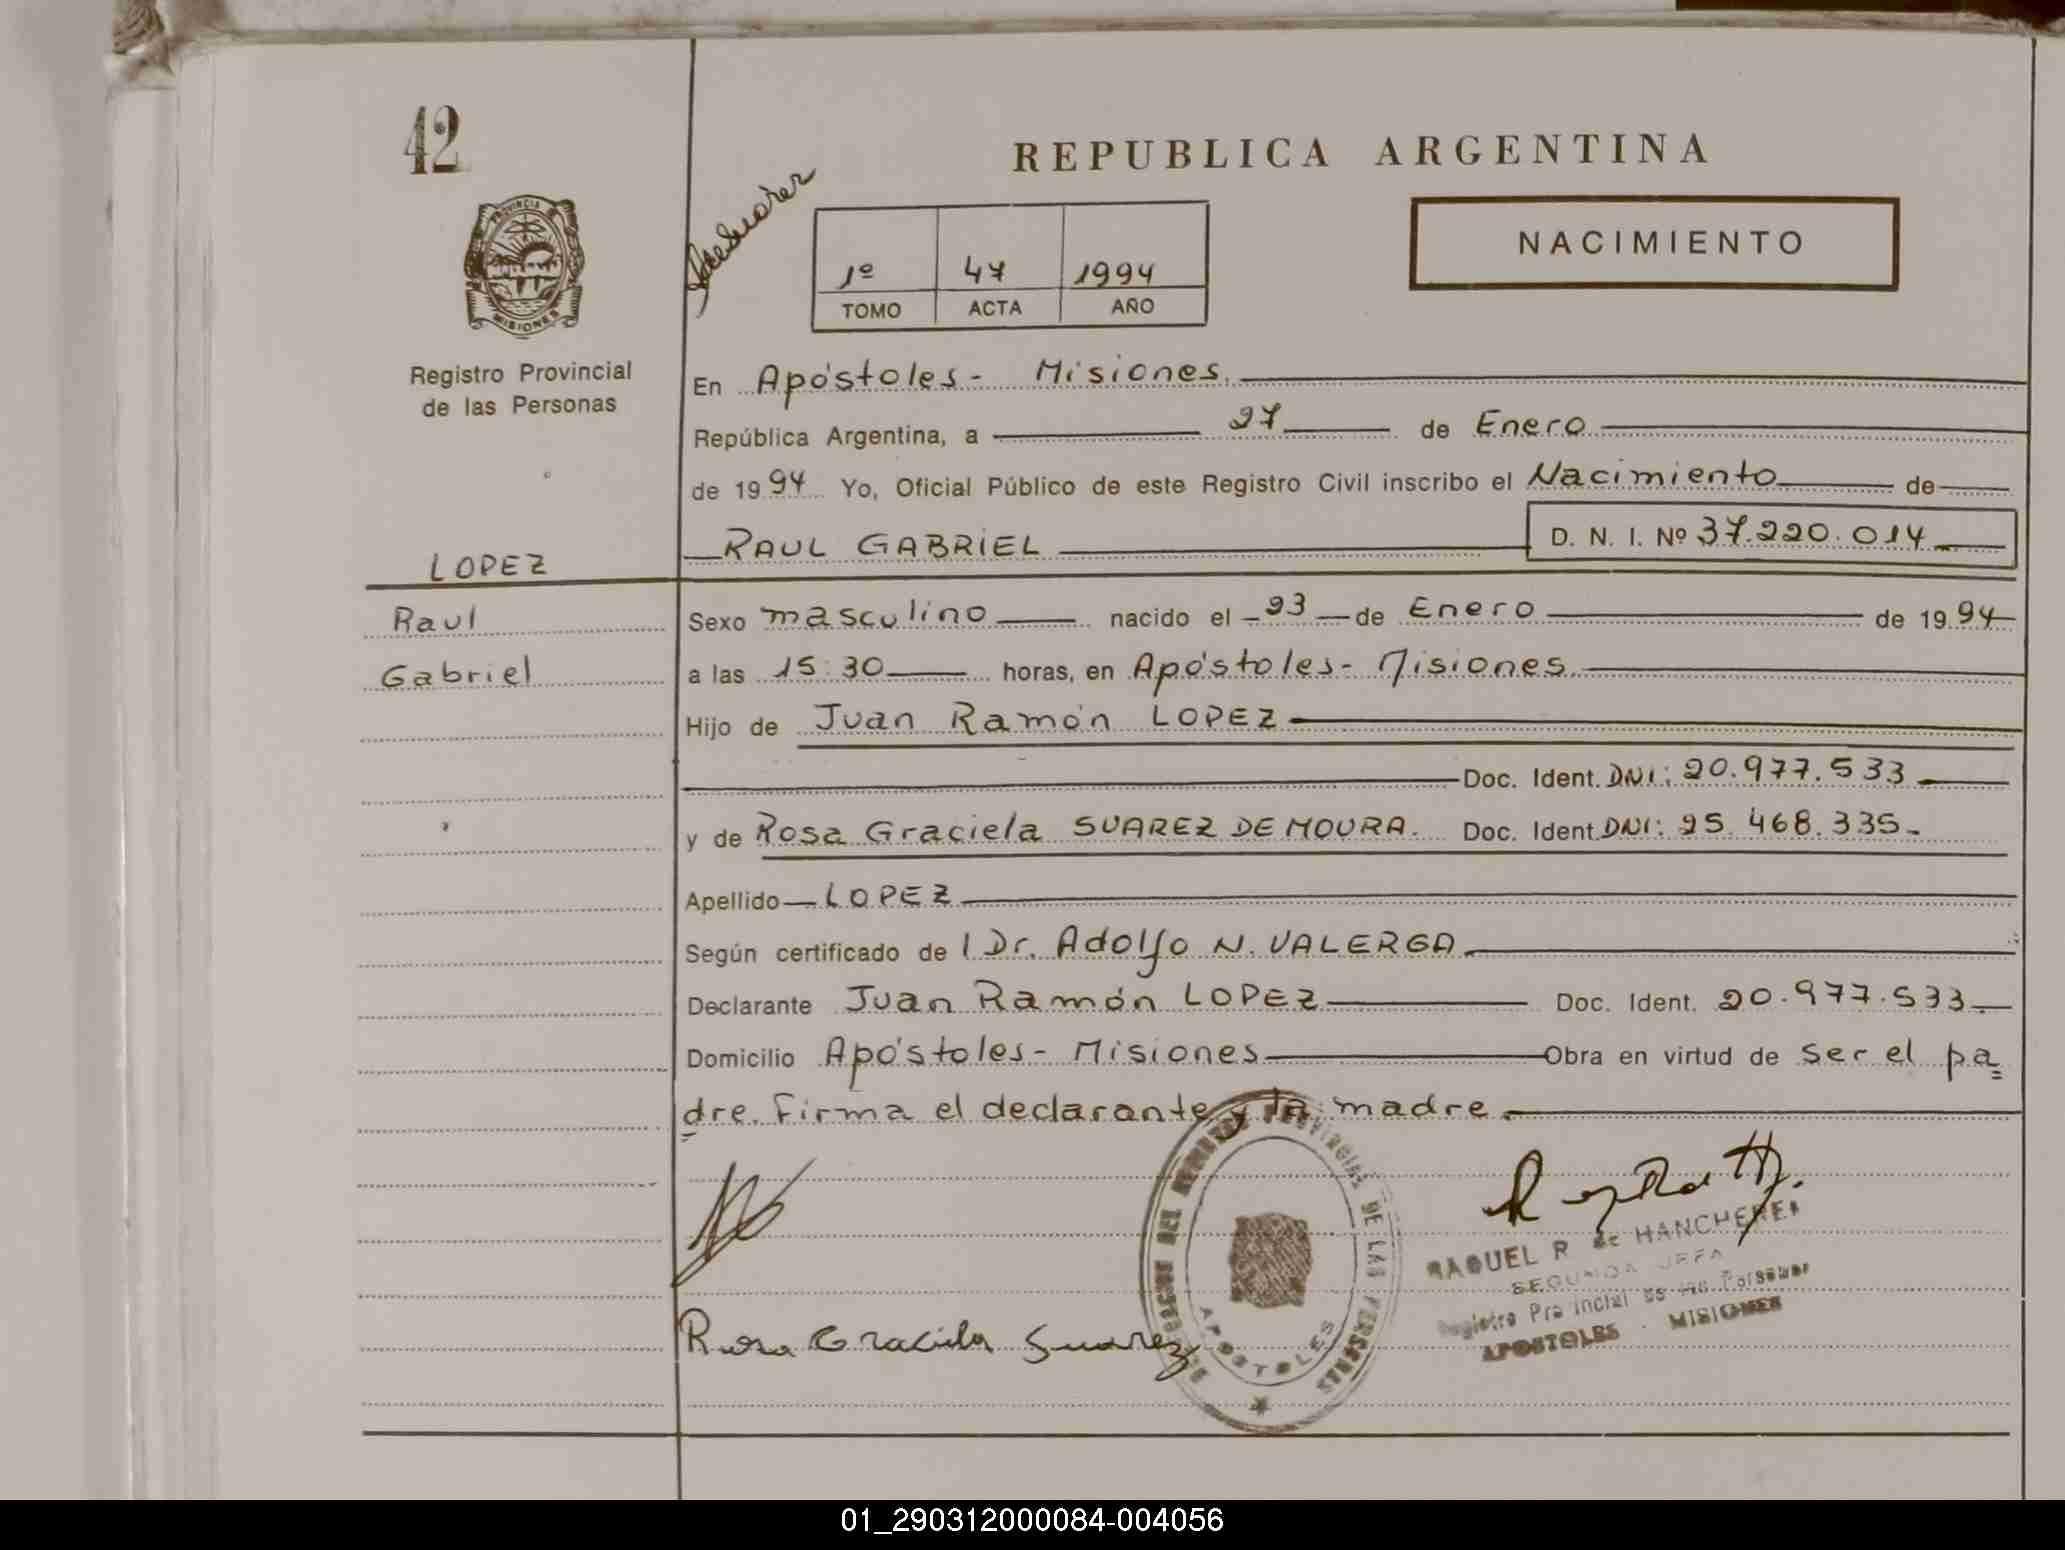 42
REPUBLICA ARGENTINA
PROVINCIA DE
MISIONES
NACIMIENTO
1º 47 1994
TOMO ACTA AÑO
Registro Provincial
de las Personas
En Apóstoles - Misiones.
República Argentina, a 27 de Enero
de 1994 Yo, Oficial Público de este Registro Civil inscribo el Nacimiento de
RAUL GABRIEL D. N. I. Nº 37.220.014
LOPEZ
Raul
Gabriel
Sexo masculino nacido el 23 de Enero de 1994
a las 15:30 horas, en Apóstoles - Misiones.
Hijo de Juan Ramón LOPEZ
Doc. Ident. DNI: 20.977.533
y de Rosa Graciela SUAREZ DE MOURA. Doc. Ident. DNI: 25.468.335.
Apellido LOPEZ
Según certificado de l Dr. Adolfo N. VALERGA
Declarante Juan Ramón LOPEZ Doc. Ident. 20.977.533
Domicilio Apóstoles - Misiones Obra en virtud de ser el pa
dre. Firma el declarante y la madre.
PROVINCIAL DE LAS PERSONAS
APOSTOLES
RAQUEL R. de
SEGUNDA JEFA
Registro Provincial de las Personas
APOSTOLES - MISIONES
Rosa Graciela Suarez
01_290312000084-004056